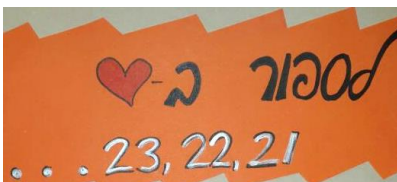 לספור ב-❤
21, 22, 23...